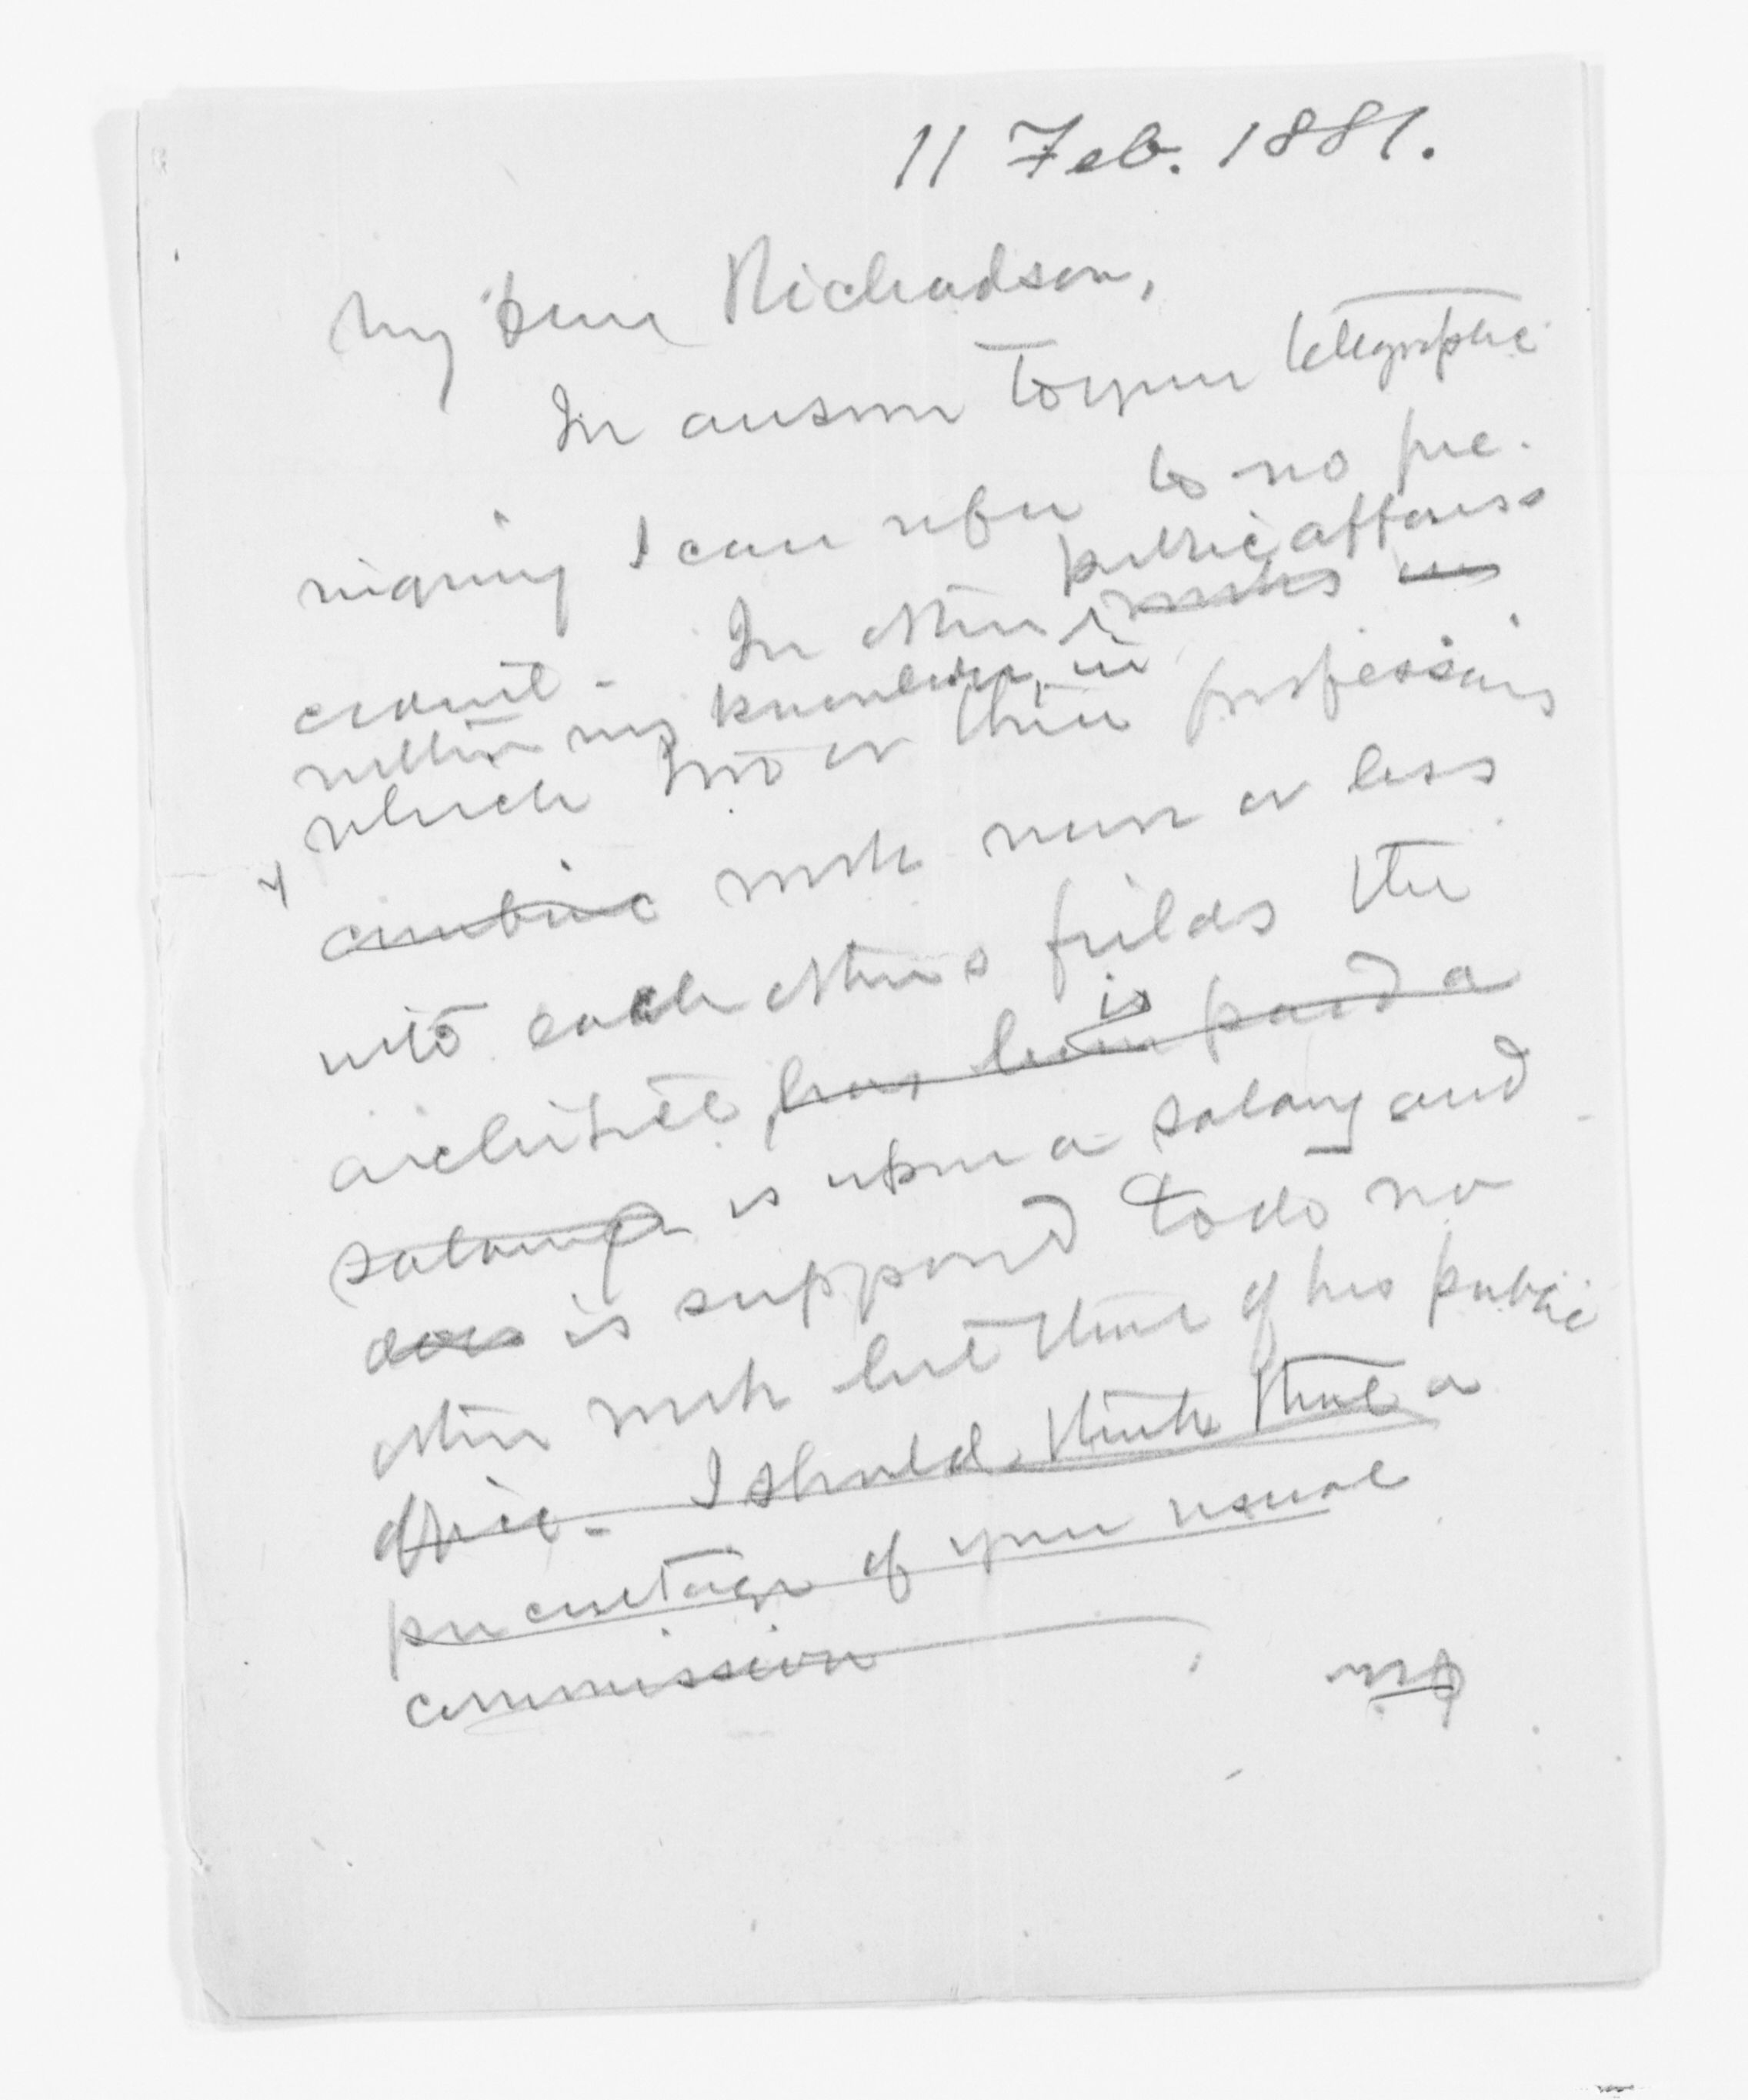 11 Feb. 1881.
My dear Richardson,
In answer to your telegraphic
inquiry I can refer to no pre-
cedent. In other
public affairs
works in
within my knowledge, in
which two or three professions
combine work more or less
into each others fields the
is
architect, has been paid a
salary is upon a salary and
does is supposed to do no
other work but that of his public
office. I should think that a
percentage of your usual
commission